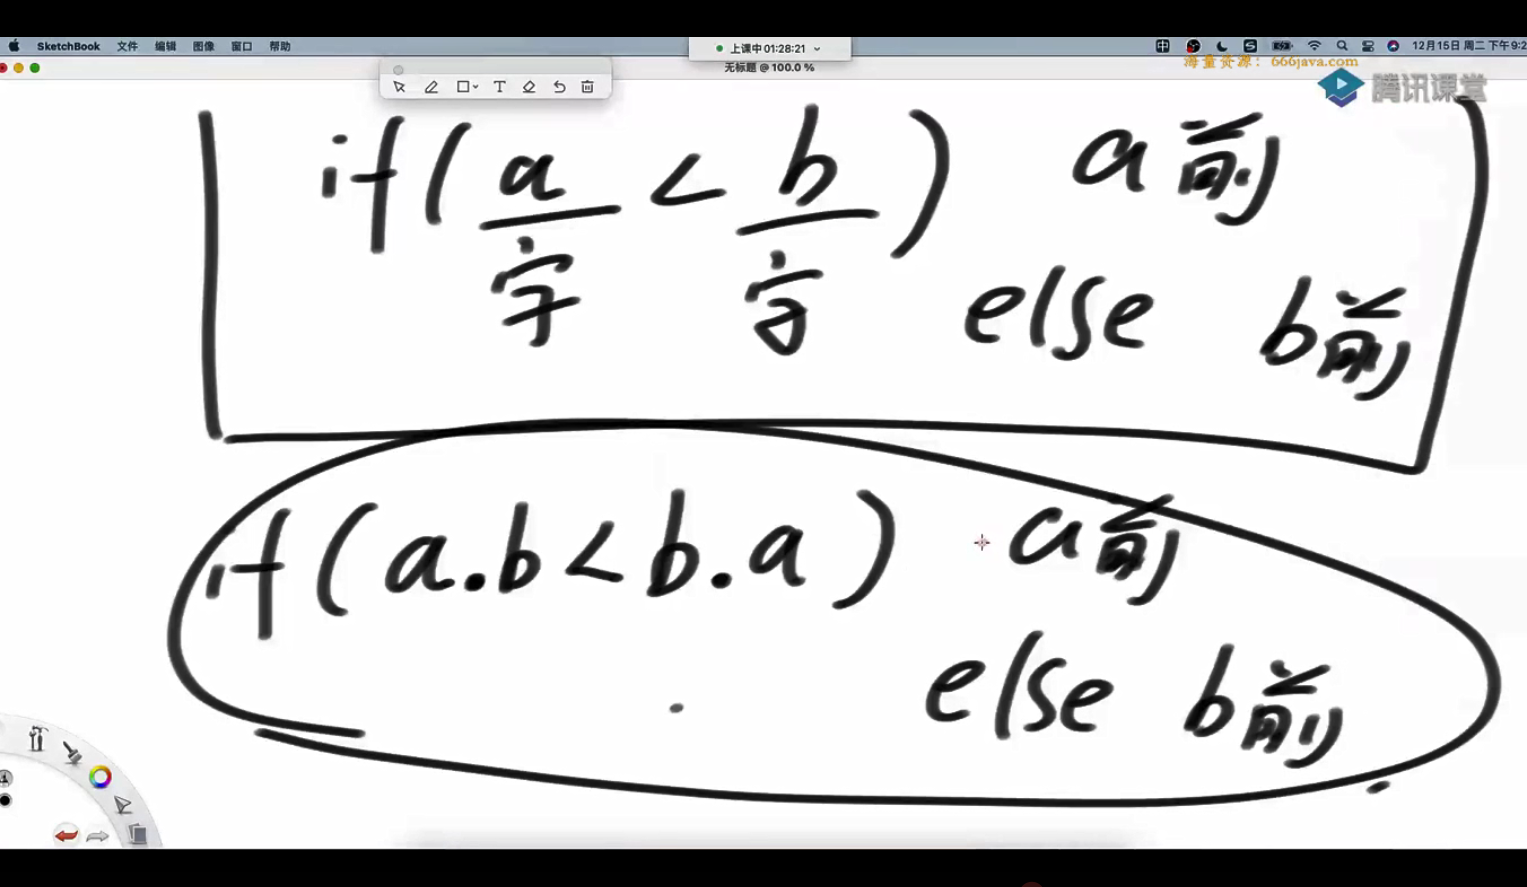 SketchBook 文件 编辑 图像 窗口 帮助
上课中 01:28:21
12月15日 周二 下午9:2
无标题 @ 100.0 %
海量资源：666java.com
腾讯课堂
T
if(a<b) a前
字 字
else b前
if(a.b<b.a) a前
else b前